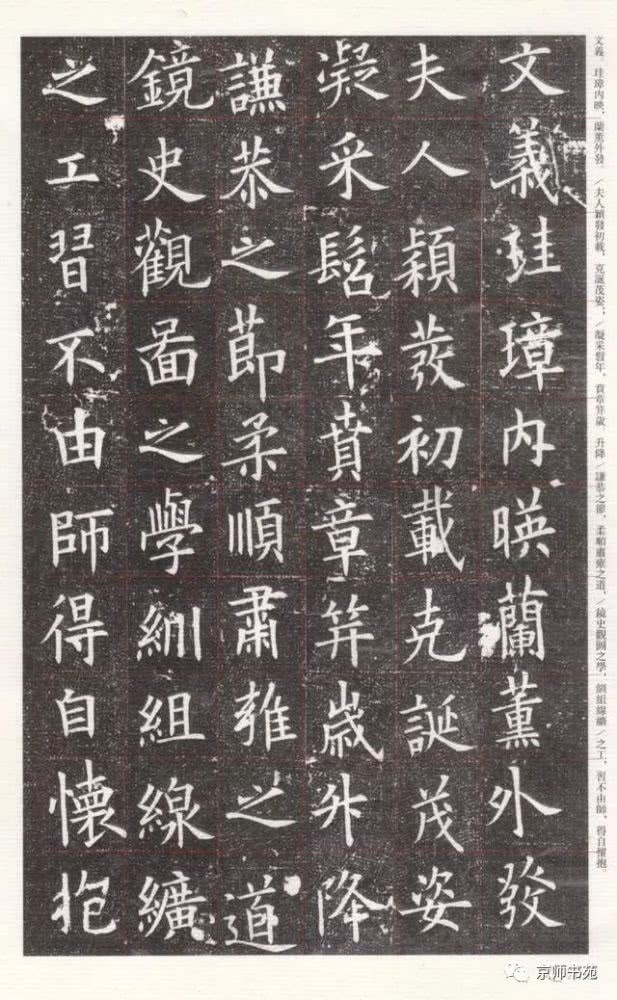 文義。珪璋内映，蘭薰外發。／夫人穎發初載，克誕茂姿，／凝采髫年，賁章笄歲。升降／謙恭之節，柔順肅雍之道，／鏡史觀圖之學，紃組線纊／之工，習不由師，得自懷抱。
文義珪璋内暎蘭薰外發
夫人穎發初載克誕茂姿
凝采髫年賁章笄歲升降
謙恭之節柔順肅雍之道
鏡史觀啚之學紃組線纊
之工習不由師得自懷抱
京师书苑